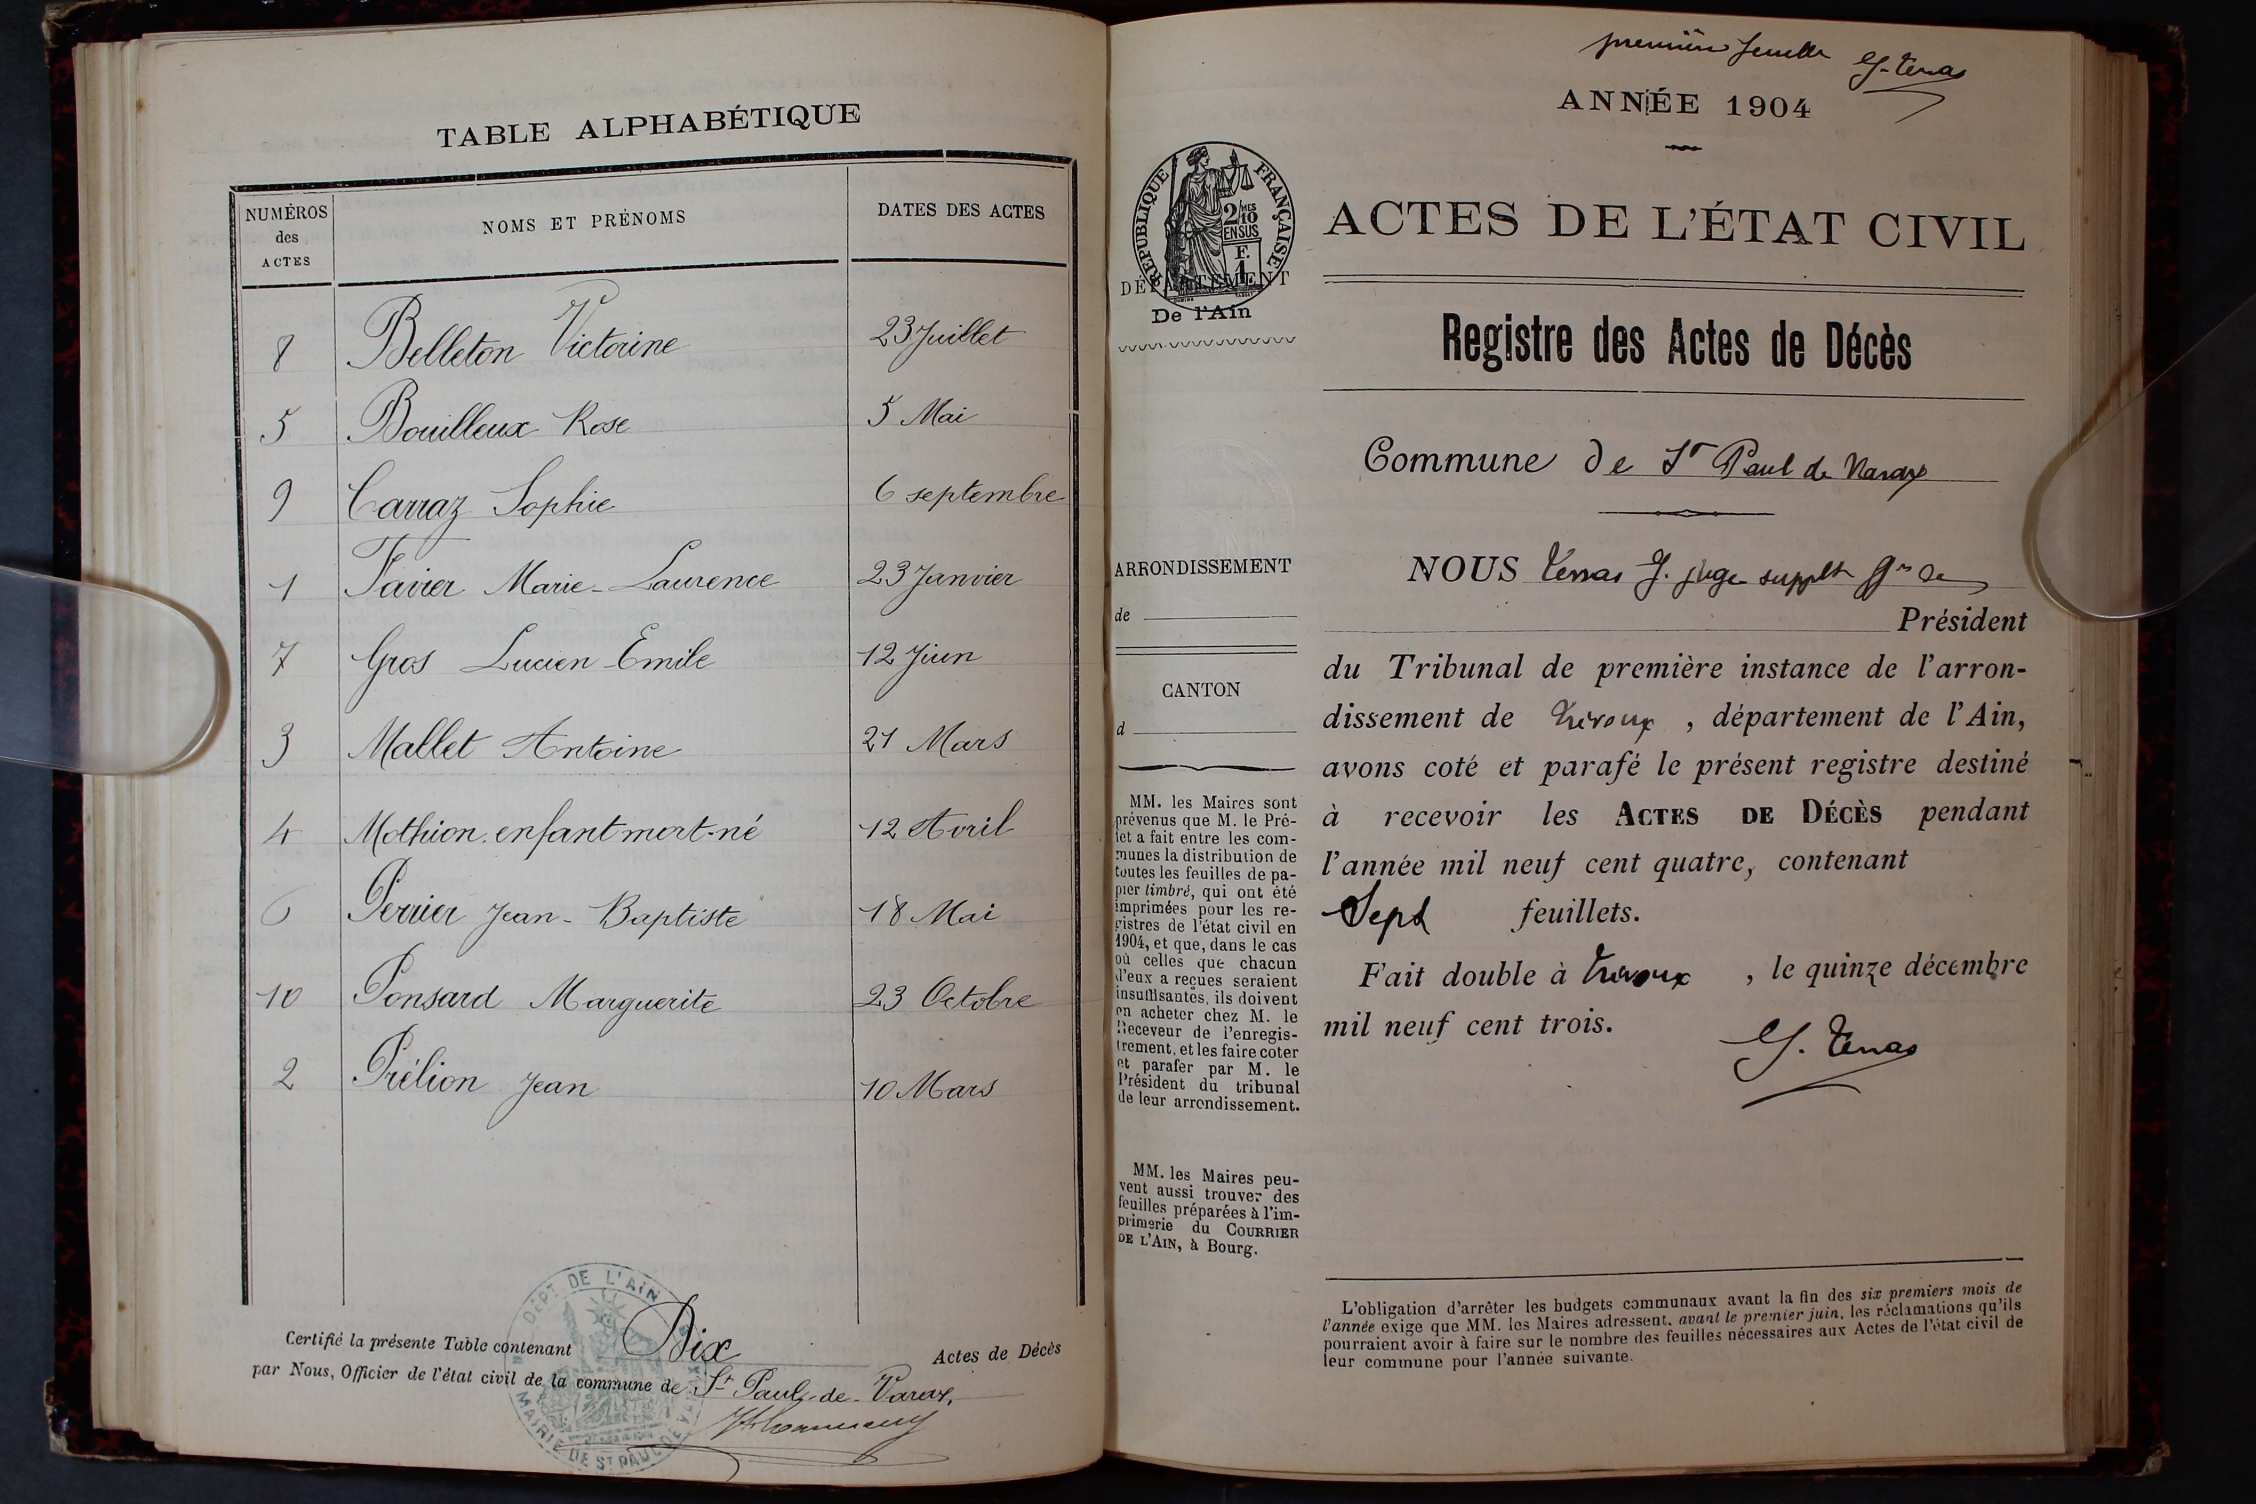 TABLE ALPHABÉTIQUE
NUMÉROS des ACTES
NOMS ET PRÉNOMS
DATES DES ACTES
8 Belleton Victorine 23 Juillet
5 Bouilloux Rose 5 Mai
9 Carraz Sophie 6 septembre
1 Favier Marie-Laurence 23 Janvier
7 Gros Lucien Emile 12 Juin
3 Mallet Antoine 21 Mars
4 Mothion enfant mort-né 12 Avril
6 Perrier Jean-Baptiste 18 Mai
10 Ponsard Marguerite 23 Octobre
2 Prélion Jean 10 Mars
Certifié la présente Table contenant Dix Actes de Décès
par Nous, Officier de l'état civil de la commune de St Paul-de-Varax,
DÉPT DE L'AIN
MAIRIE DE ST PAUL DE
première feuille G. Terras
ANNÉE 1904
RÉPUBLIQUE FRANÇAISE
2/MES 10 EN SUS
F. 1
DÉPARTEMENT
De l'Ain
ACTES DE L'ÉTAT CIVIL
Registre des Actes de Décès
Commune de St Paul de Varax
ARRONDISSEMENT
de
CANTON
d
MM. les Maires sont
prévenus que M. le Pré-
fet a fait entre les com-
munes la distribution de
toutes les feuilles de pa-
pier timbré, qui ont été
imprimées pour les re-
gistres de l'état civil en
1904, et que, dans le cas
où celles que chacun
d'eux a reçues seraient
insuffisantes, ils doivent
en acheter chez M. le
Receveur de l'enregis-
trement, et les faire coter
et parafer par M. le
Président du tribunal
de leur arrondissement.
MM. les Maires peu-
vent aussi trouver des
feuilles préparées à l'im-
primerie du COURRIER
DE L'AIN, à Bourg.
NOUS Terras J. juge supplt
Président
du Tribunal de première instance de l'arron-
dissement de Trévoux, département de l'Ain,
avons coté et parafé le présent registre destiné
à recevoir les ACTES DE DÉCÈS pendant
l'année mil neuf cent quatre, contenant
Sept feuillets.
Fait double à Trévoux, le quinze décembre
mil neuf cent trois.
G. Terras
L'obligation d'arrêter les budgets communaux avant la fin des six premiers mois de
l'année exige que MM. les Maires adressent, avant le premier juin, les réclamations qu'ils
pourraient avoir à faire sur le nombre des feuilles nécessaires aux Actes de l'état civil de
leur commune pour l'année suivante.